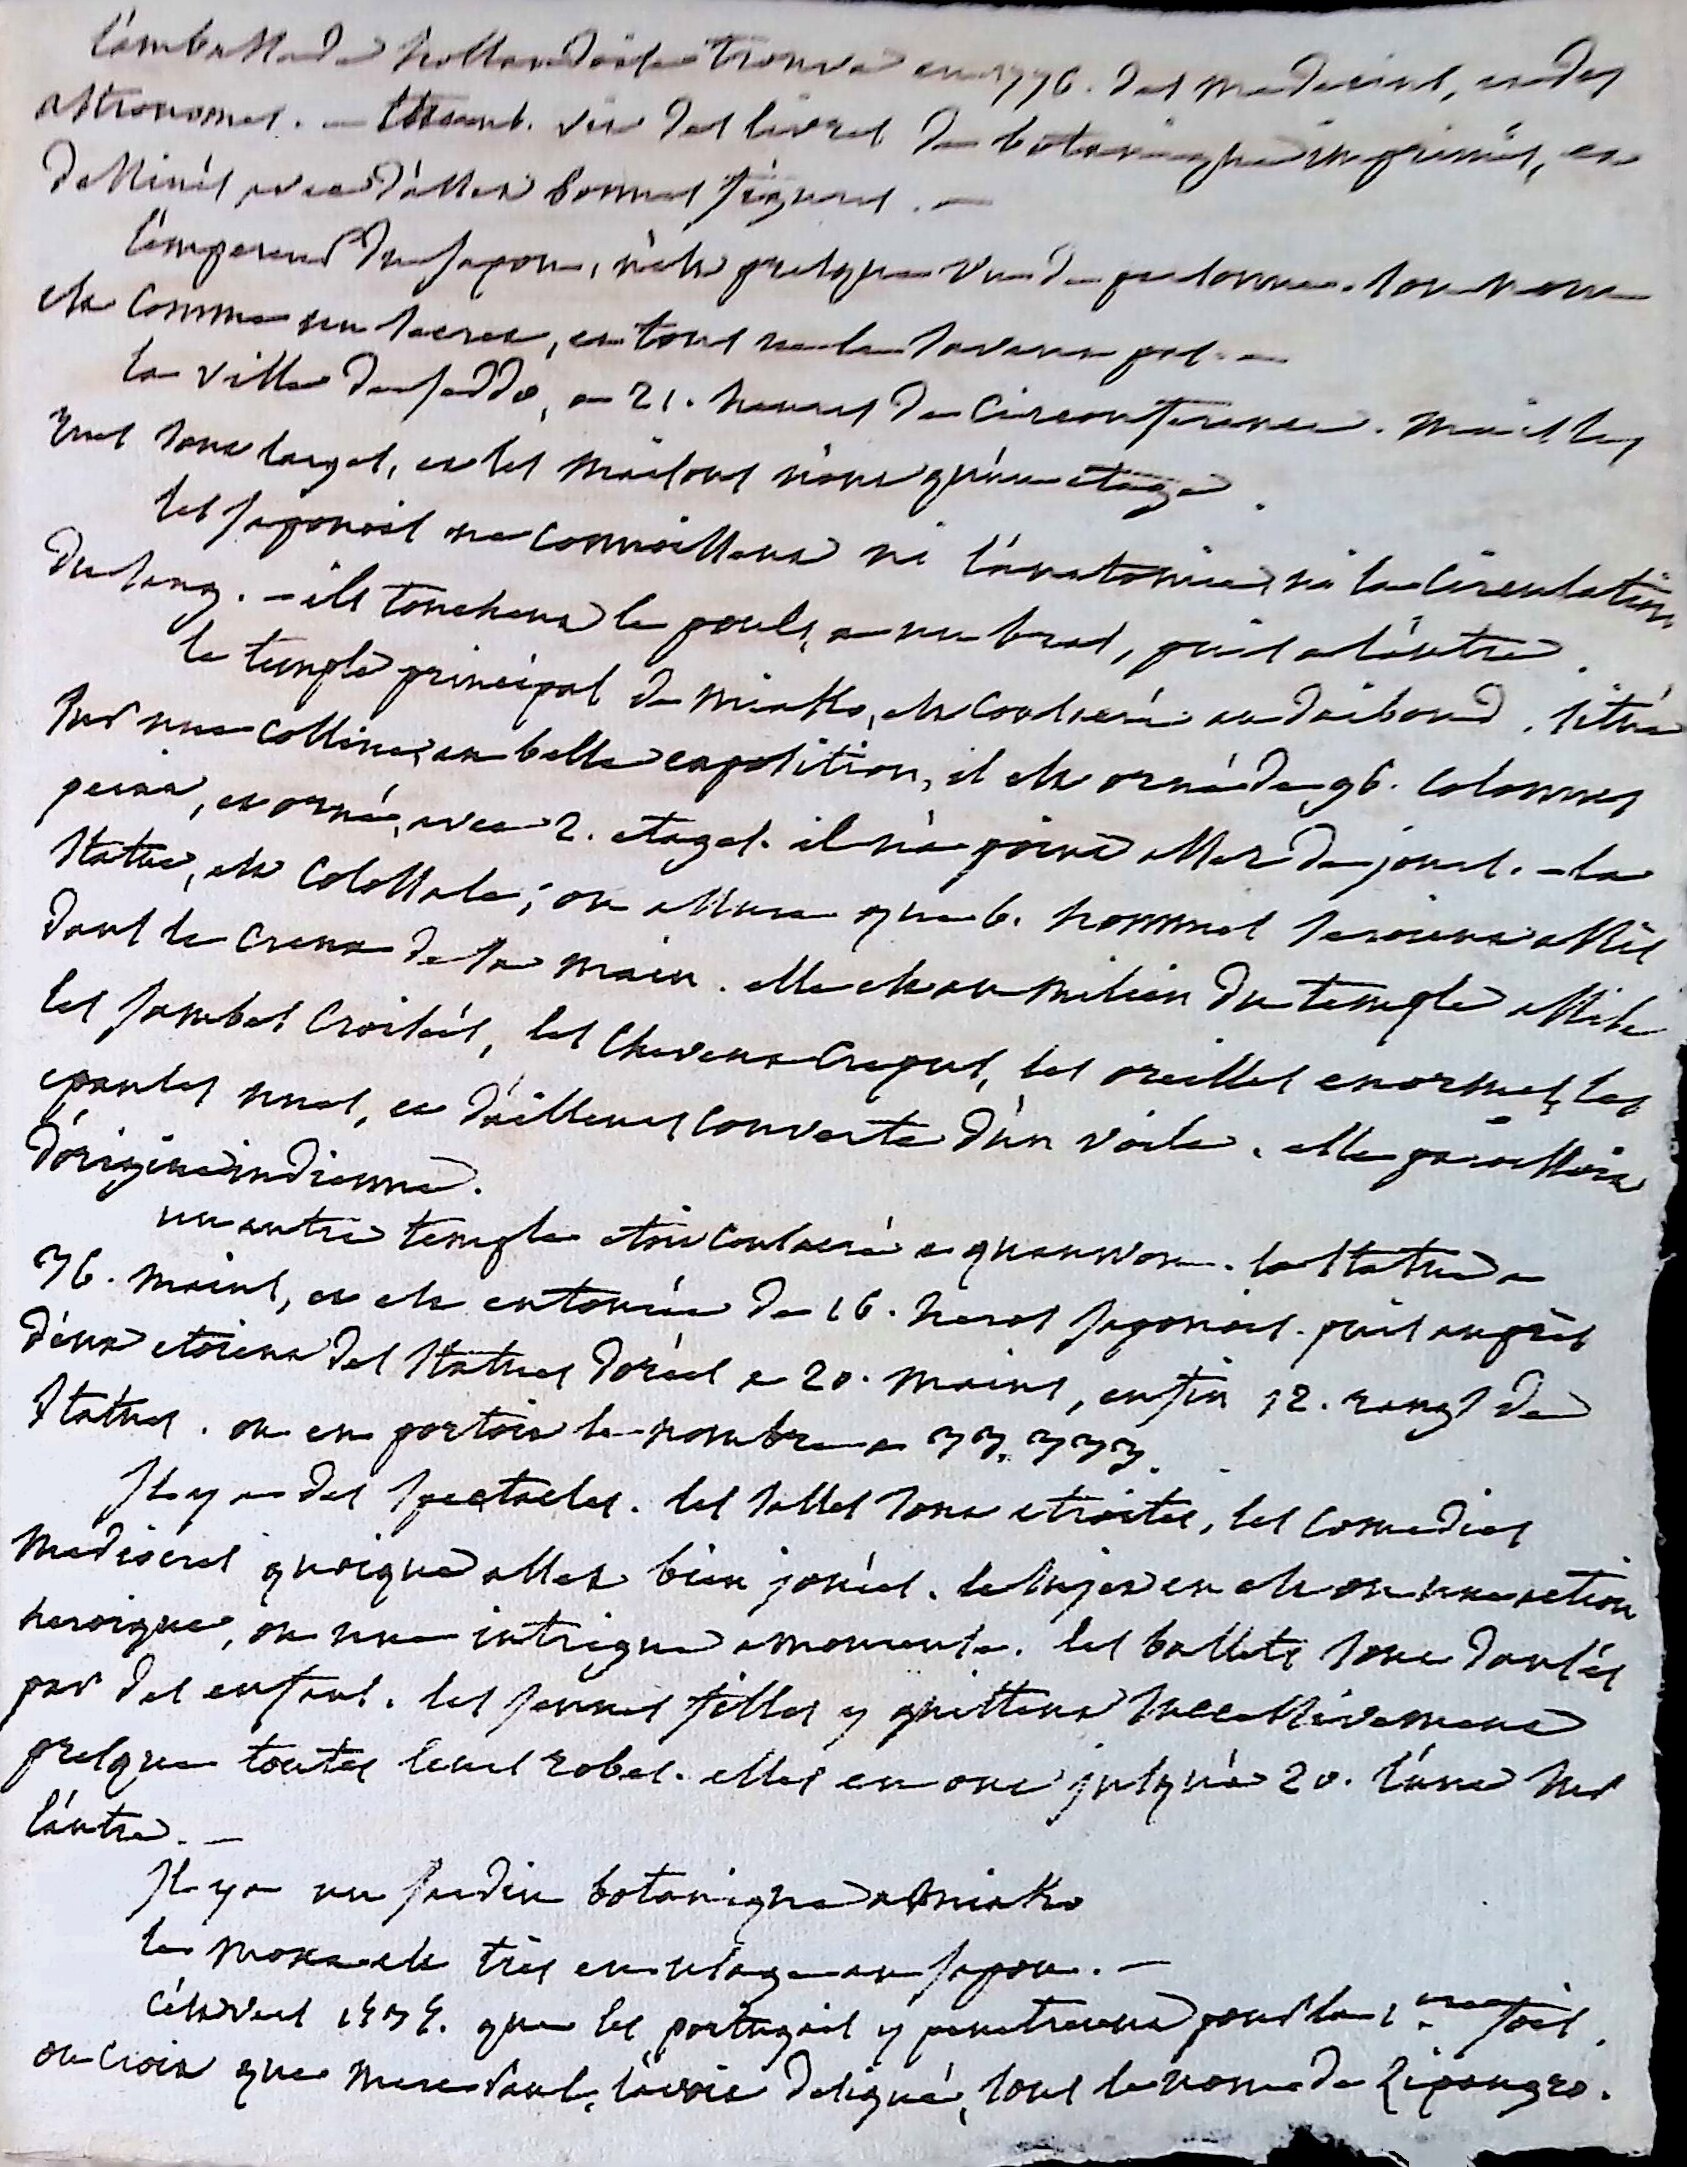 l'ambassade hollandoise trouva en 1776. des medecins, et des
astronomes. – Thunb. vit des livres de botanique imprimés, et
dessinés avec d'assez bonnes figures. –
l'empereur du Japon, n'est presque vu de personne. son nom
est comme un secret, et tous ne le savent pas. –
la ville de Jeddo, a 21. heures de circonference. mais les
rues sont larges, et les maisons n'ont qu'un etage.
les Japonois ne connoissent ni l'anatomie, ni la circulation
du sang. – ils touchent le pouls, a un bras, puis a l'autre.
le temple principal de Miako, est consacré au daiboud. situé
sur une colline, en belle exposition, il est orné de 96. colonnes
peint, et orné, avec 2. etages. il n'a point assez de jours. – la
statue, est colossale ; on assure que 6. hommes seroient assis
dans le creux de sa main. elle est au milieu du temple assise
les jambes croisées, les cheveux crepus, les oreilles enormes, les
epaules nues, et d'ailleurs couverte d'un voile. elle paroissoit
d'origine indienne.
un autre temple etoit consacré a quanwon. la statue a
36. mains, et est entourée de 16. heros Japonois. puis auprès
d'eux etoient des statues dorées a 20. mains, enfin 12. rangs de
statues. on en portoit le nombre a 33,333.
Il y a des spectacles. les salles sont etroites, les comedies
mediocres quoique assez bien jouées. le sujet en est ou une action
heroique, ou une intrigue amoureuse. les ballets sont dansés
par des enfans. les jeunes filles y quittent successivement
presque toutes leurs robes. elles en ont jusqu'à 20. l'une sur
l'autre. –
Il y a un jardin botanique a Miako
le moxa est très en usage au Japon. –
c'est vers 1535. que les portugais y penetrerent pour la 1.re fois.
on croit que Marc Paul, l'avoit designé, sous le nom de Zipangro.